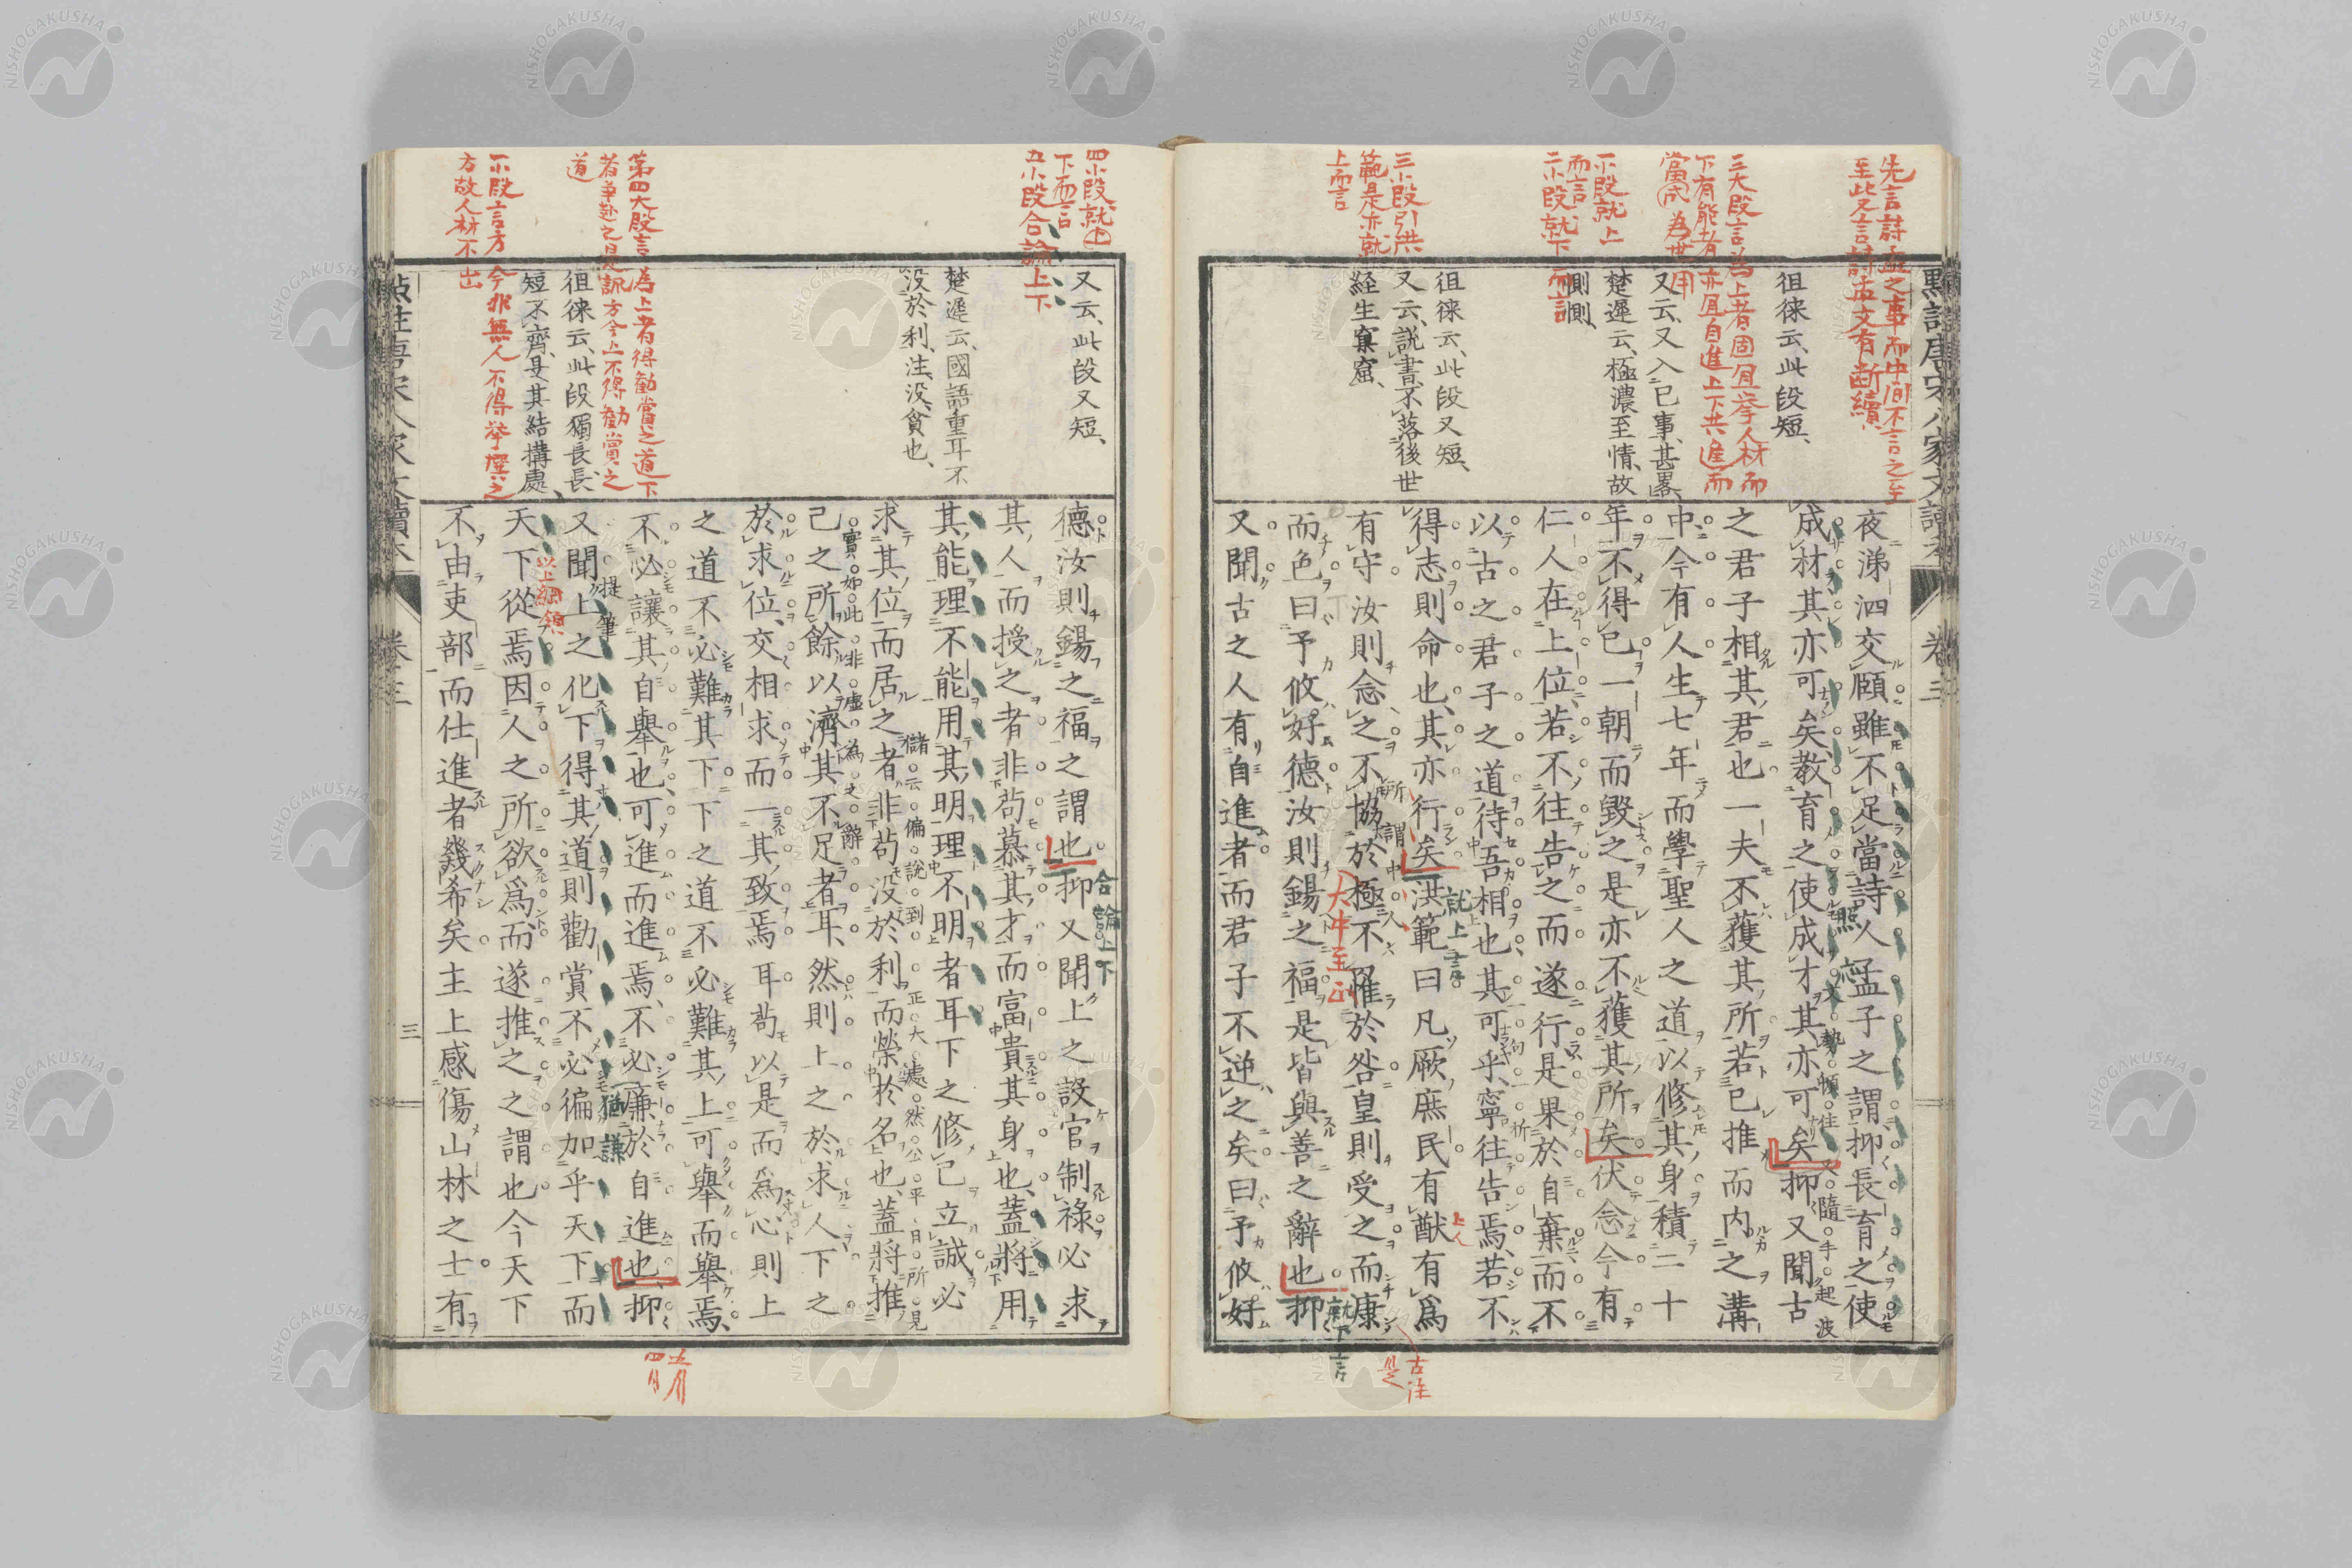 先言詩孟之事而中間不言之至
至此又言詩孟文有断續
三大段言為上者固宜挙人材而
下有能者亦宜自進上下共進而
當成為世用
一小段就上
而言
二小段就下而言
三小段引洪
範是亦就
上而言
徂徠云、此段短、
又云、又入己事、甚畧、
楚遲云、極濃至情、故
惻惻、
徂徠云、此段又短、
又云、説書、不落後世
経生窠窟、
夜涕泗交頤雖不足當詩人孟子之謂抑長育之使
成材其亦可矣教育之使成才其亦可矣抑又聞古
之君子相其君也一夫不獲其所若己推而内之溝
中今有人生七年而學聖人之道以修其身積二十
年不得已一朝而毀之是亦不獲其所矣伏念今有
仁人在上位若不往告之而遂行是果於自棄而不
以古之君子之道待吾相也其可乎寧往告焉若不
得志則命也其亦行矣洪範曰凡厥庶民有猷有爲
有守汝則念之不協於極不罹於咎皇則受之而康
而色曰予攸好德汝則錫之福是皆與善之辭也抑
又聞古之人有自進者而君子不逆之矣曰予攸好
大中至正
就上言
就下言
古注
四小段就上
下而言
五小段合論上下
第四大段言為上者得勧賞之道下
者争赴之是訊方今上不得勧賞之
道
一小段言方今非無人不得挙擢之
方故人材不出
又云、此段又短、
楚遲云、國語重耳不
没於利、注、没、貪也、
徂徠云、此段獨長、長
短不齊、是其結構處、
德汝則錫之福之謂也抑又聞上之設官制祿必求
其人而授之者非苟慕其才而富貴其身也蓋將用
其能理不能用其明理不明者耳下之修己立誠必
求其位而居之者非苟没於利而榮於名也蓋將推
己之所餘以濟其不足者耳然則上之於求人下之
於求位交相求而一其致焉耳苟以是而為心則上
之道不必難其下下之道不必難其上可舉而舉焉
不必讓其自舉也可進而進焉不必廉於自進也抑
又聞上之化下得其道則勸賞不必徧加乎天下而
天下從焉因人之所欲爲而遂推之之謂也今天下
不由吏部而仕進者幾希矣主上感傷山林之士有
合論上下
提筆
以上綱領
猶謙
三